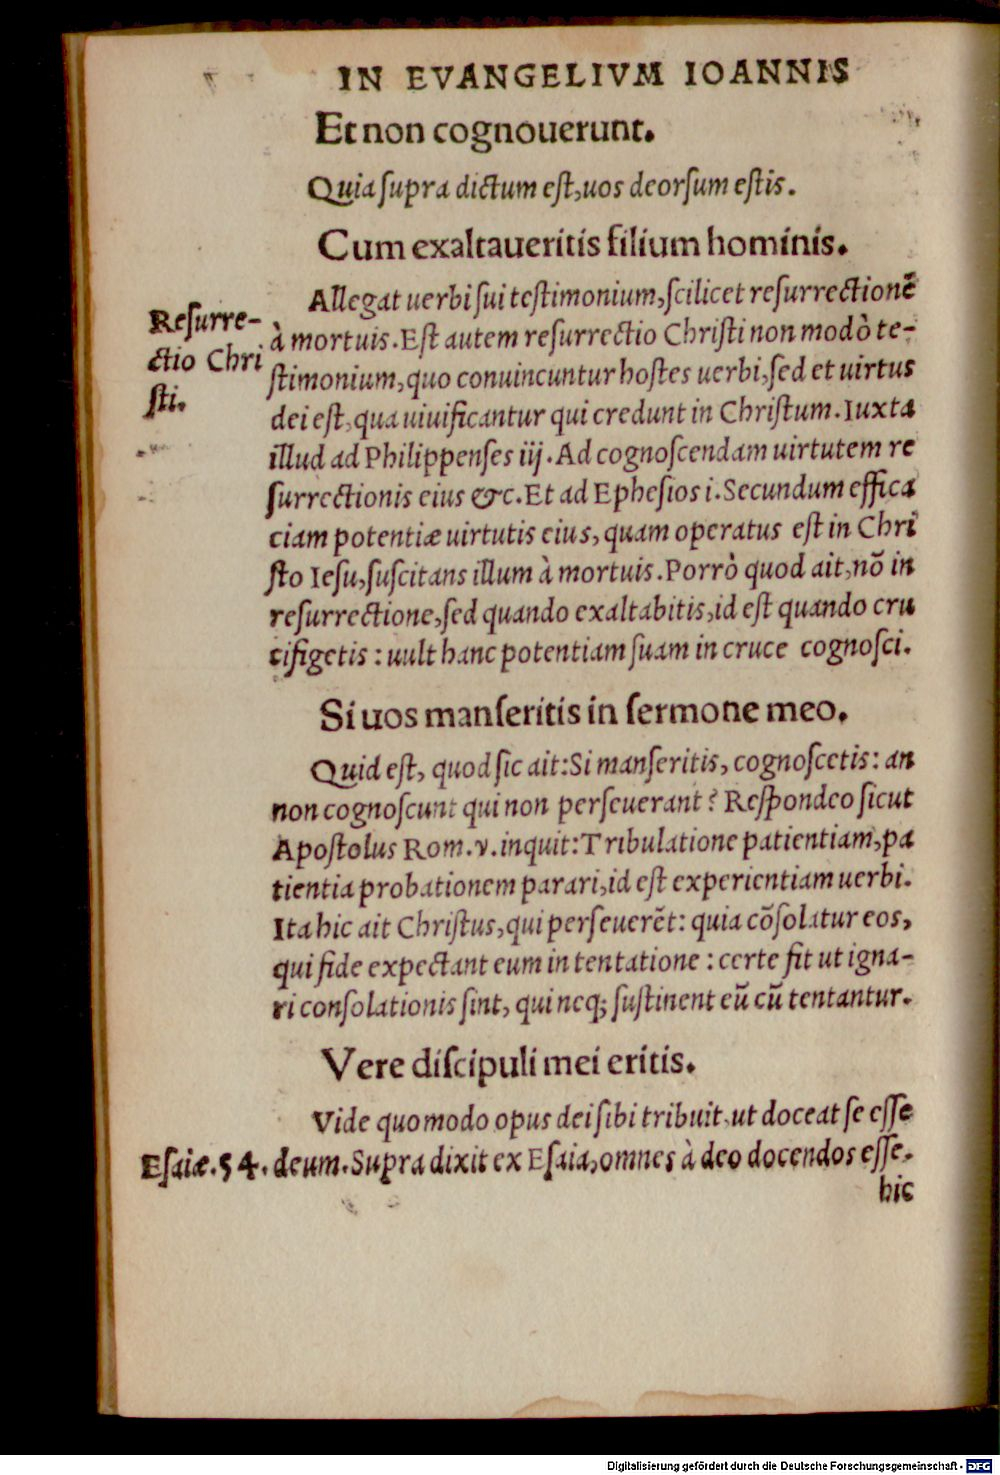 IN EVANGELIVM IOANNIS
Et non cognouerunt.
Quia ſupra dictum eſt, uos deorſum eſtis.
Cum exaltaueritis filium hominis.
Allegat uerbi ſui teſtimonium, ſcilicet reſurrectionē
à mortuis. Eſt autem reſurrectio Chriſti non modò te-
ſtimonium, quo conuincuntur hoſtes uerbi, ſed et uirtus
dei eſt, qua uiuificantur qui credunt in Chriſtum. Iuxta
illud ad Philippenſes iij. Ad cognoſcendam uirtutem re
ſurrectionis eius &c. Et ad Epheſios i. Secundum effica
ciam potentiæ uirtutis eius, quam operatus eſt in Chri
ſto Ieſu, ſuſcitans illum à mortuis. Porrò quod ait, nō in
reſurrectione, ſed quando exaltabitis, id eſt quando cru
cifigetis : uult hanc potentiam ſuam in cruce cognoſci.
Reſurre-
ctio Chri
ſti.
Si uos manſeritis in ſermone meo.
Quid eſt, quod ſic ait: Si manſeritis, cognoſcetis: an
non cognoſcunt qui non perſeuerant? Reſpondeo ſicut
Apoſtolus Rom. v. inquit: Tribulatione patientiam, pa
tientia probationem parari, id eſt experientiam uerbi.
Ita hic ait Chriſtus, qui perſeuerēt: quia cōſolatur eos,
qui fide expectant eum in tentatione : certe fit ut igna-
ri conſolationis ſint, qui neq; ſuſtinent eū cū tentantur.
Vere diſcipuli mei eritis.
Vide quomodo opus dei ſibi tribuit, ut doceat ſe eſſe
Eſaiæ. 54. deum. Supra dixit ex Eſaia, omnes à deo docendos eſſe.
hic
Digitalisierung gefördert durch die Deutsche Forschungsgemeinschaft - DFG